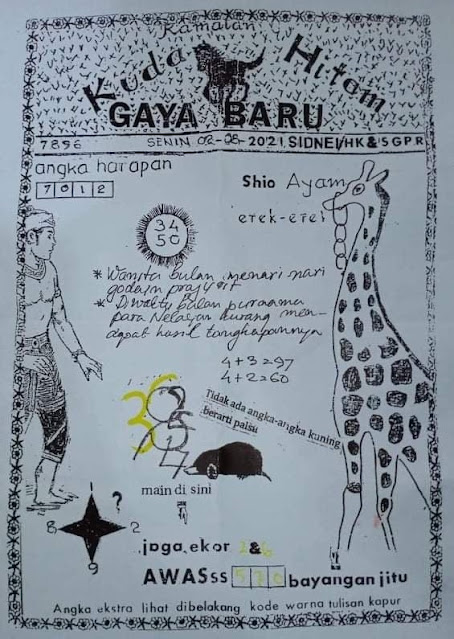 Ramalan
Kuda Hitam
GAYA BARU
7896 SENIN 02-08-2021, SIDNEI/HK & SGPR
angka harapan
7012
Shio Ayam
erek-erek
34
50
* Wanita bulan menari nari
godain prajurit
* Diwaktu bulan purnama
para Nelayan kurang men-
dapat hasil tangkapannya
4+3=97
4+2=60
Tidak ada angka-angka kuning
berarti palsu
main di sini
?
8 2
9
jaga ekor 2&6
AWASss 570 bayangan jitu
Angka ekstra lihat dibelakang kode warna tulisan kapur